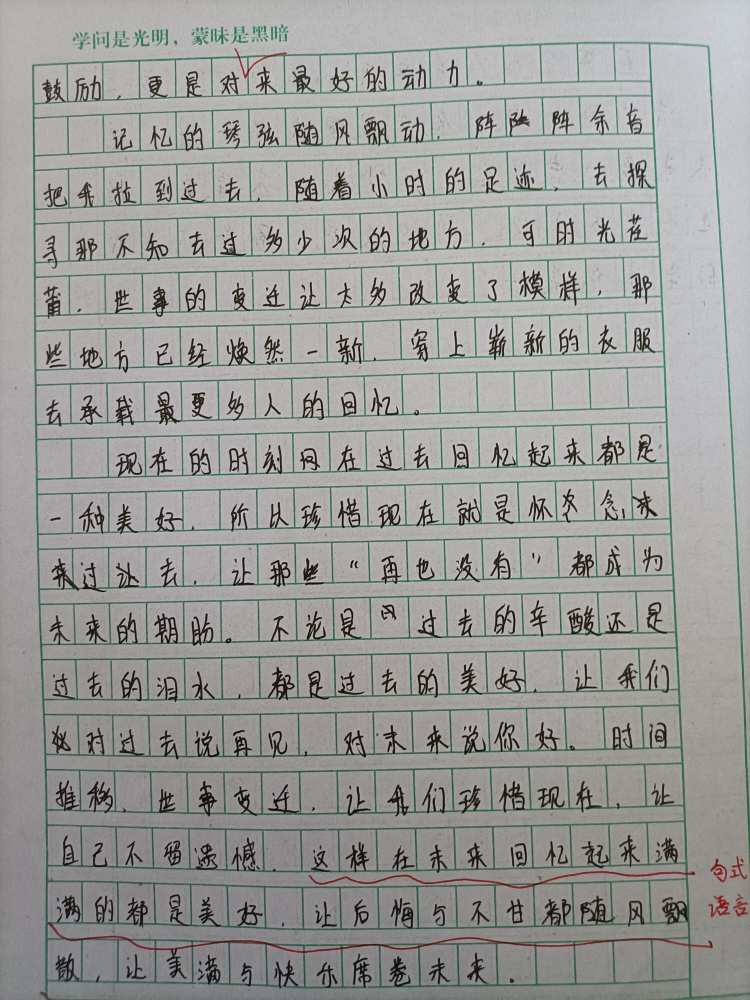 学问是光明，蒙昧是黑暗
鼓励，更是对来最好的动力。
记忆的琴弦随风飘动，阵阵余音
把我拉到过去，随着小时的足迹，去探
寻那不知去过多少次的地方，可时光荏
苒，世事的变迁让太多改变了模样，那
些地方已经焕然一新，穿上崭新的衣服
去承载最更多人的回忆。
现在的时刻问在过去回忆起来都是
一种美好，所以珍惜现在就是怀念
过去，让那些“再也没有”都成为
未来的期盼。不论是过去的辛酸还是
过去的泪水，都是过去的美好，让我们
对过去说再见，对未来说你好。时间
推移，世事变迁，让我们珍惜现在，让
自己不留遗憾，这样在未来回忆起来满
满的都是美好，让后悔与不甘都随风飘
散，让美满与快乐席卷未来。
句式
语言